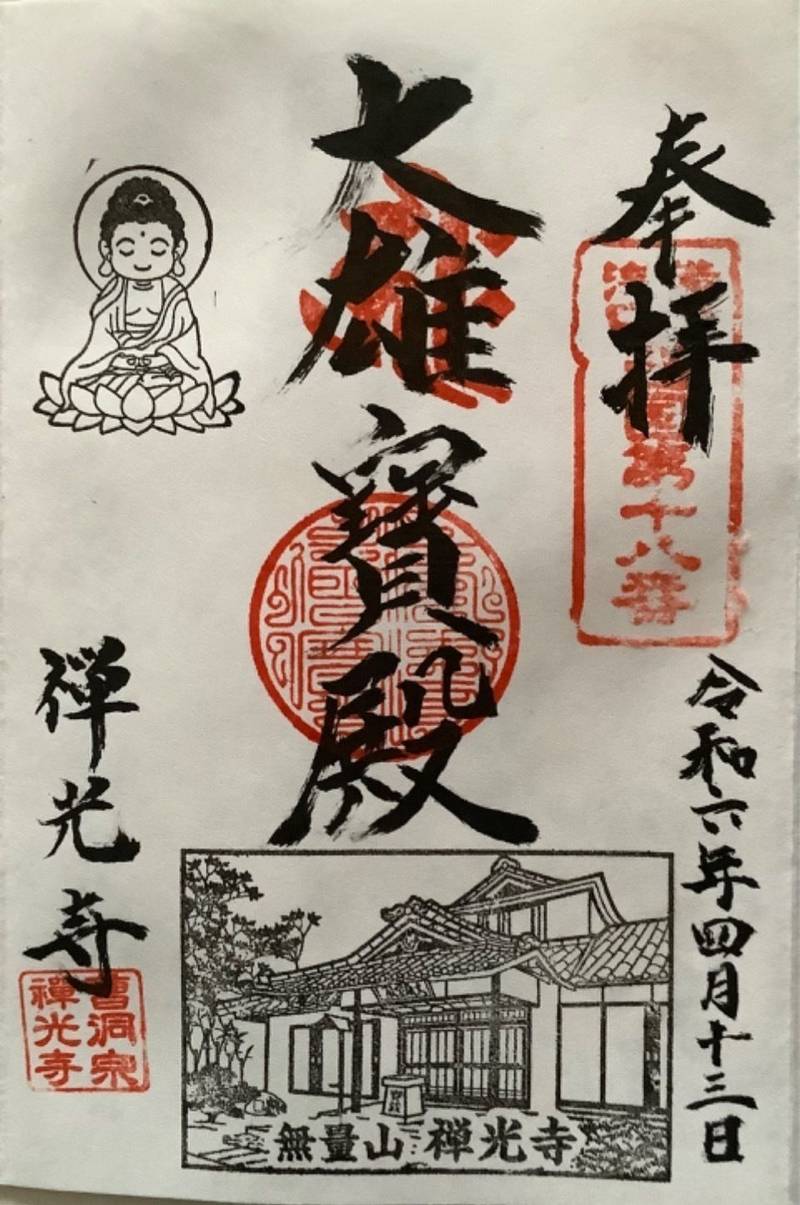 奉拝
第十八番
令和六年四月十三日
大雄寶殿
無量山 禅光寺
禅光寺
曹洞宗
禅光寺